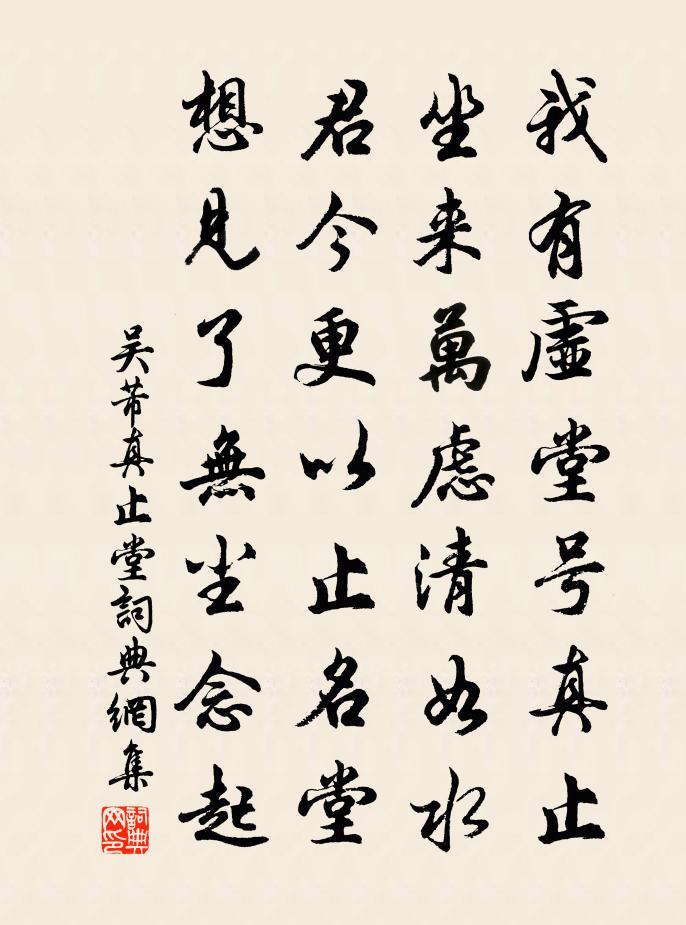 我有虛堂号真止
坐来萬慮清如水
君今更以止名堂
想見了無尘念起
吴芾真止堂詞典網集
詞典網印